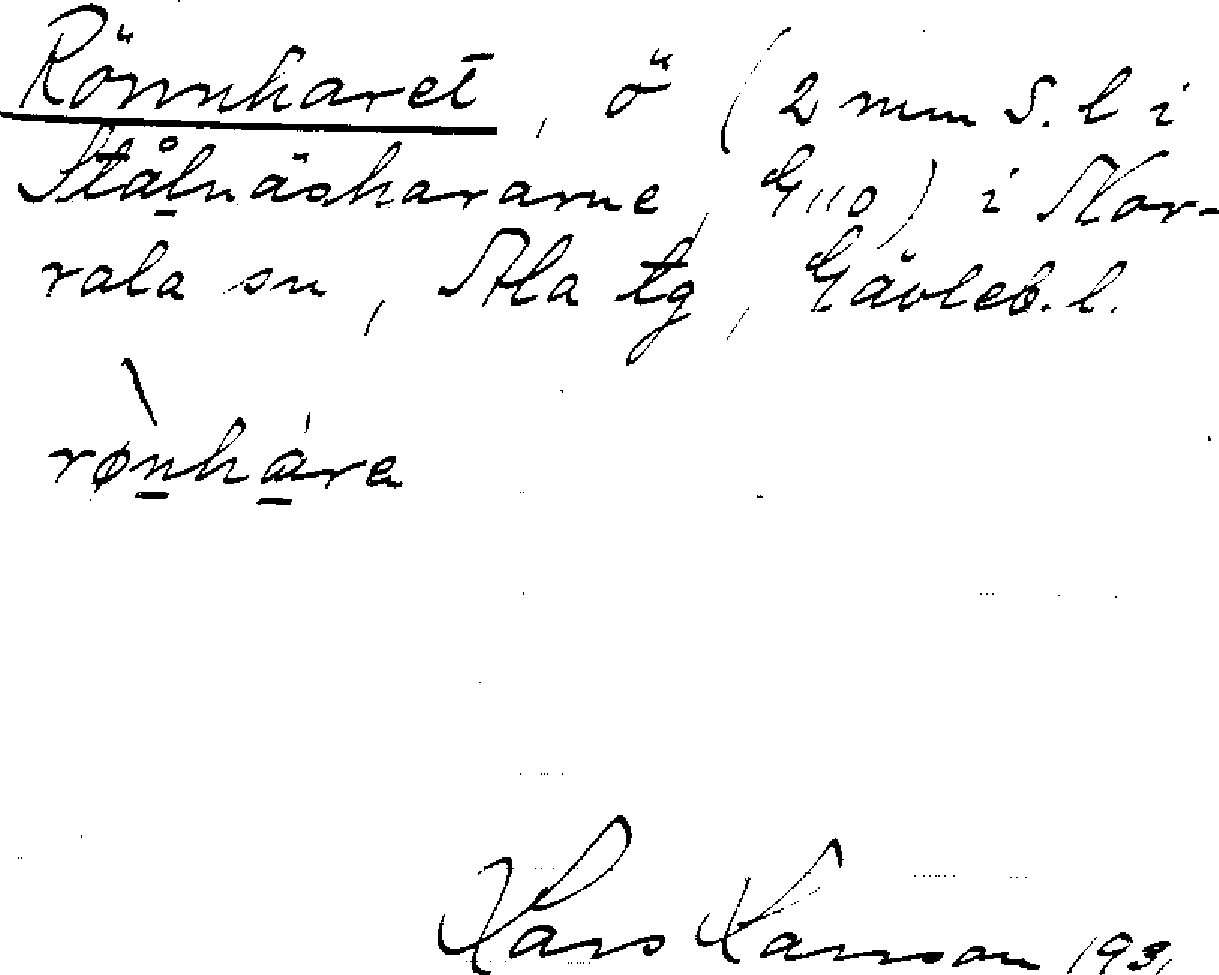 Rönnharet, ö (2 mm S. l i
Stålnäshararne, G110) i Nor-
rala sn, Ala tg, Gävleb. l.
rø̀n̲há̲re
Lars Larsson 1931